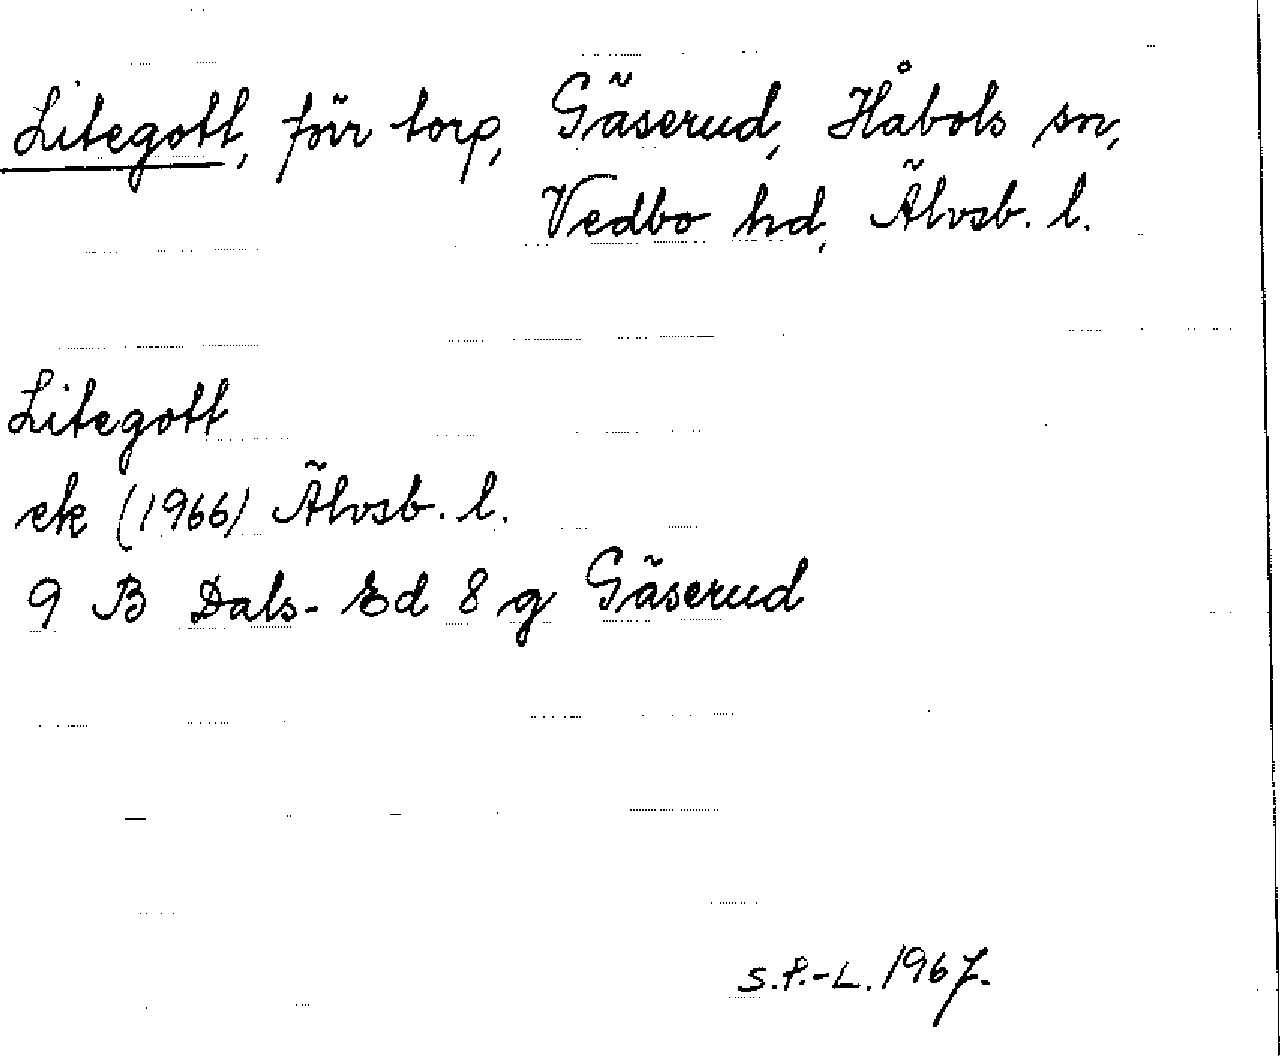 Litegott, förr torp, Gäserud, Håbols sn,
Vedbo hd, Älvsb. l.
Litegott
ek (1966) Älvsb. l.
9 B Dals-Ed 8 g Gäserud
S.F.-L. 1967.